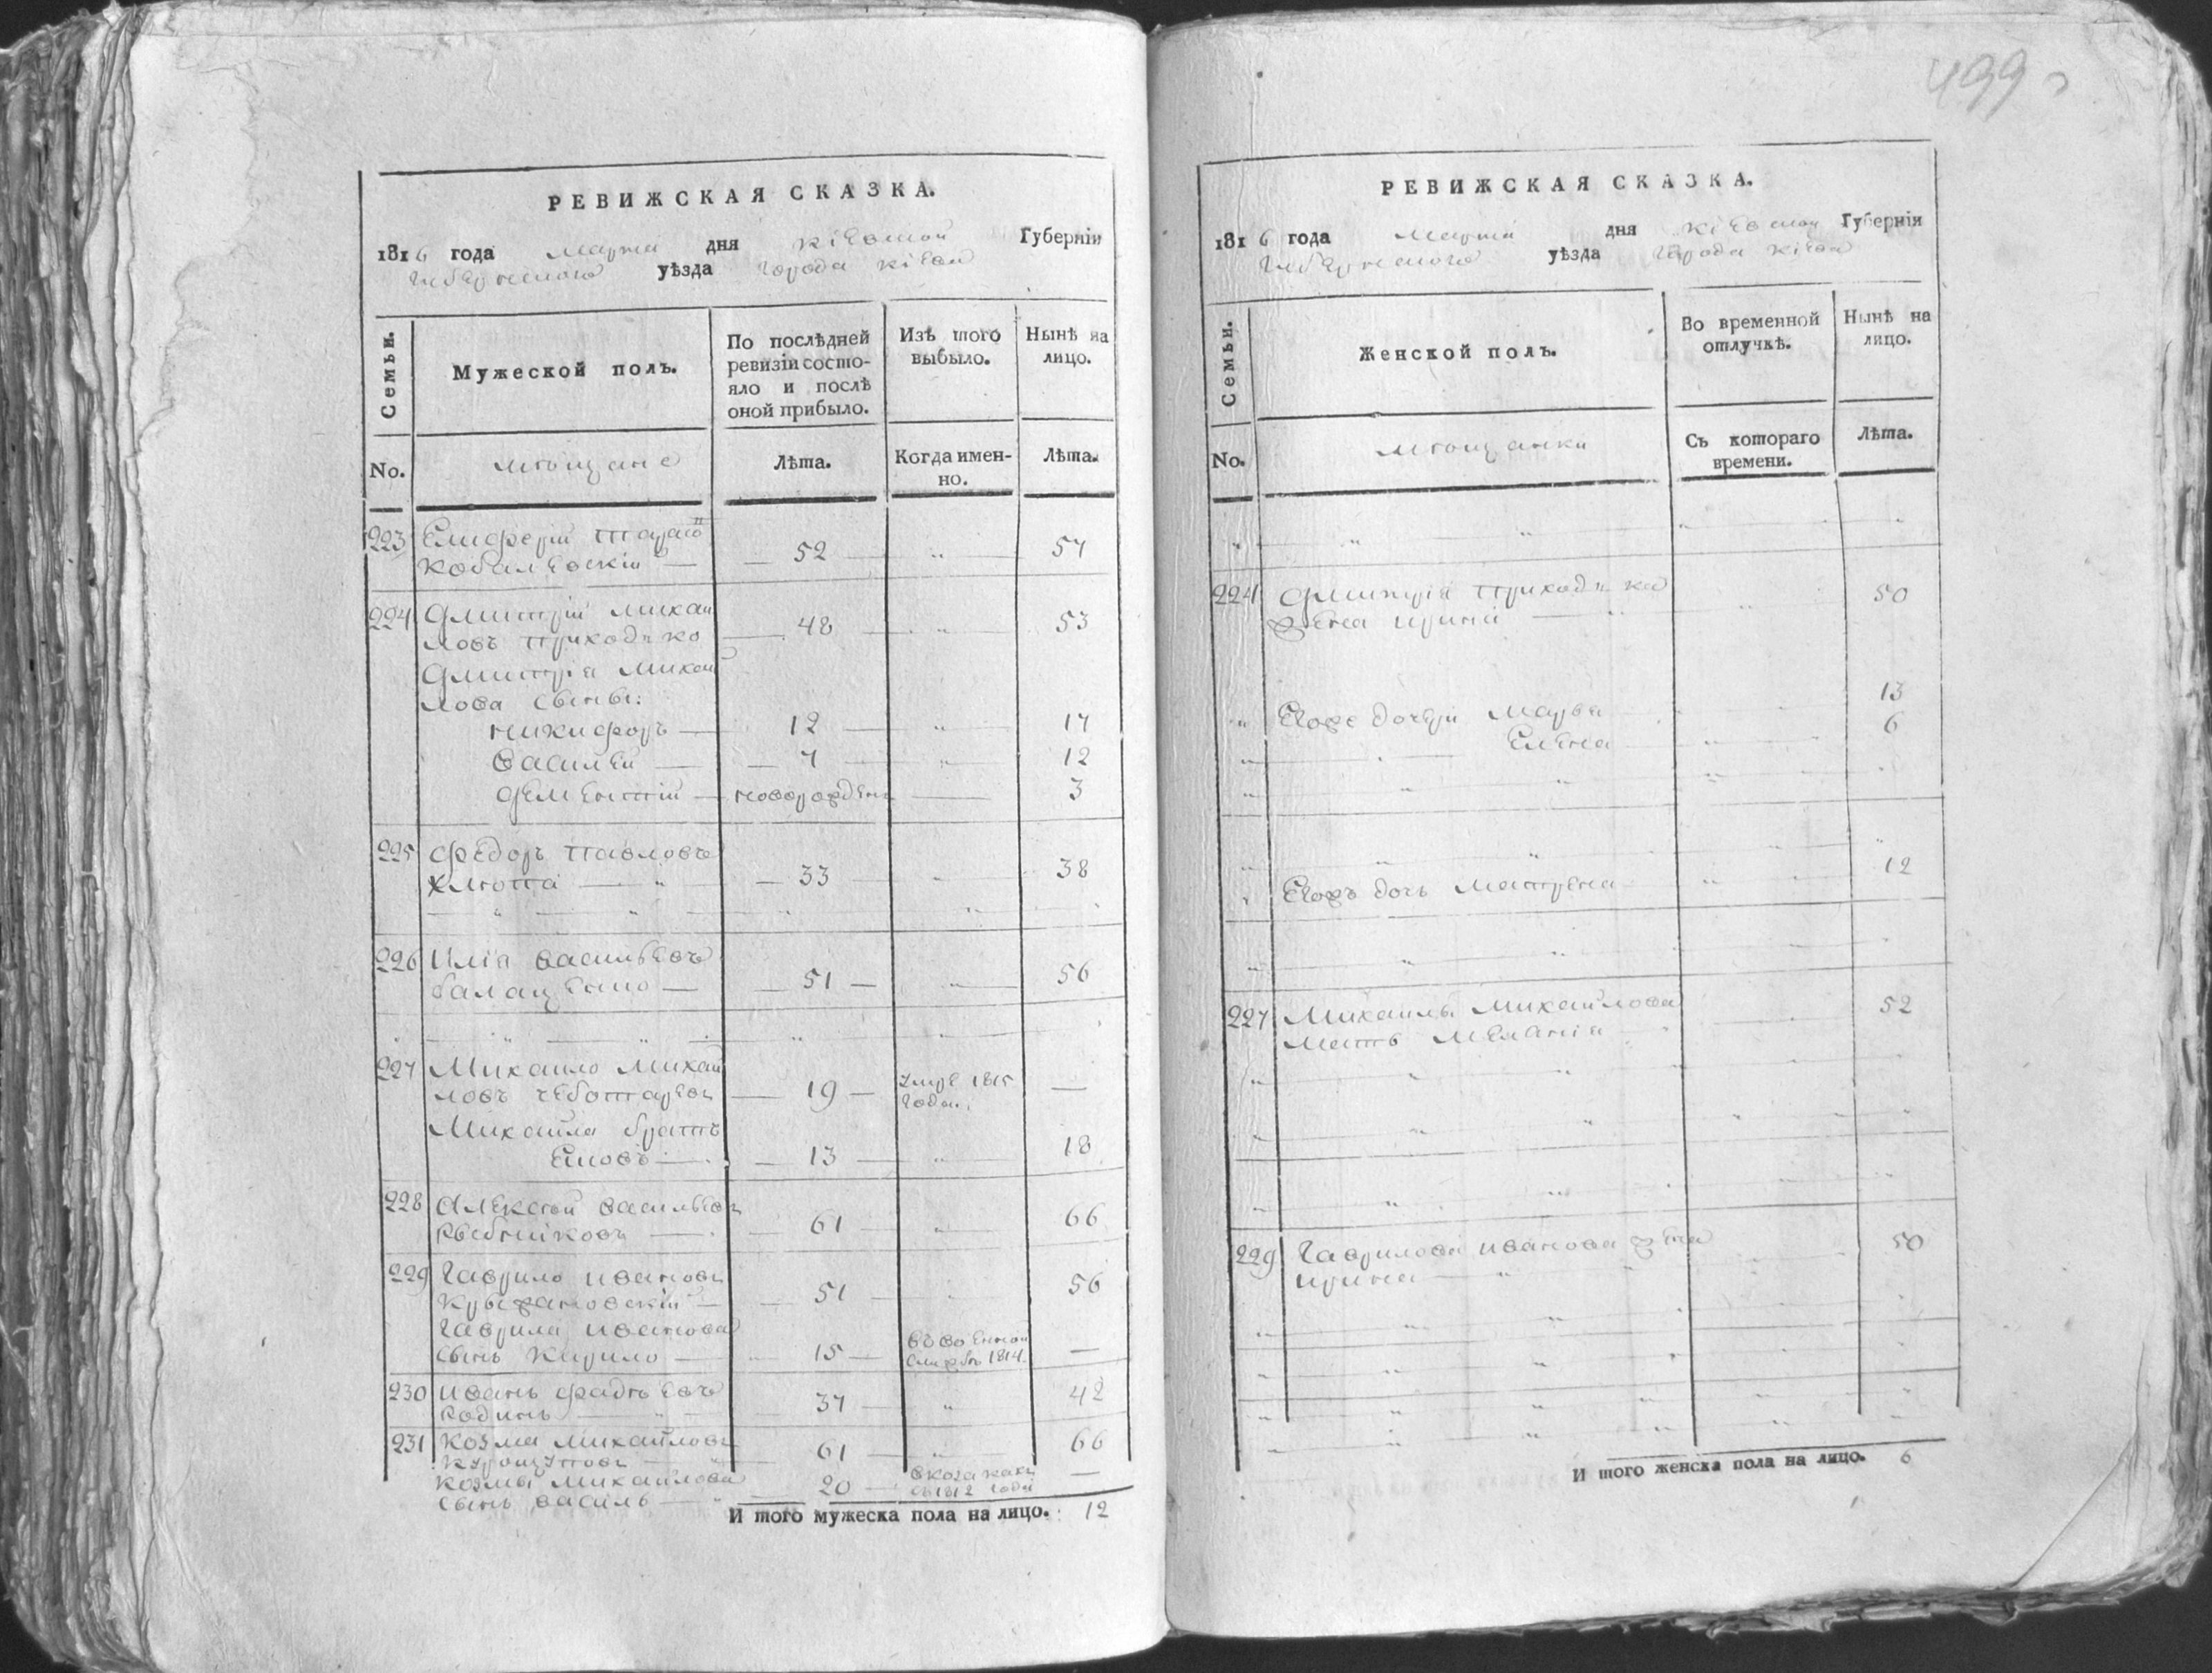 499
РЕВИЖСКАЯ СКАЗКА.
1816 года марта дня Кіевской Губерніи
Губернского уѣзда города Кіева
Семьи.
Мужеской полъ.
По послѣдней ревизіи состо-
яло и послѣ оной прибыло.
Изъ того выбыло.
Нынѣ на лицо.
No.
мѣщане
Лѣта.
Когда имен-
но.
Лѣта.
223 Елиферій
Ковалевскій — 52 — " — 57
224 Дмитрій Михай
ловъ Приходько — 48 — " — 53
Дмитрія Михай
лова сыны:
Никифоръ — 12 — " — 17
Василей — 7 — " — 12
Дементій — новорожденъ — 3
225 Федоръ Павловъ
Клюпа — " — 33 — " — 38
226 Илія Васильевъ
51 — " — 56
227 Михайло Михай
ловъ Чеботаревъ — 19 — умре 1815
года. —
Михайла братъ
— 13 — " — 18
228 Алексѣй Васильевъ
Рыбниковъ — 61 — " — 66
229 Гаврило Ивановъ
Крыжановскій — 51 — " — 56
Гаврила Иванова
сынъ Кирило — 15 — въ военной
службѣ 1814. —
230 Иванъ Фадѣевъ
Родинъ — " — 37 — " — 42
231 Козма Михайловъ
61 — " — 66
Козмы Михайлова
сынъ Василь — 20 — в козакахъ
съ 1812 года —
И того мужеска пола на лицо. 12
РЕВИЖСКАЯ СКАЗКА.
1816 года марта дня Кіевской Губерніи
Губернского уѣзда города Кіева
Семьи.
Женской полъ.
Во временной отлучкѣ.
Нынѣ на лицо.
No.
мѣщанки
Съ котораго времени.
Лѣта.
224 Дмитрія Приходька
жена Ирина — " 50
" Егоже дочери Марѳа 13
" Елена " 6
" Егожъ дочь Матрена " 12
227 Михайлы Михайлова
мать Меланія 52
229 Гаврилова Иванова жена
Ирина — " 50
И того женска пола на лицо. 6